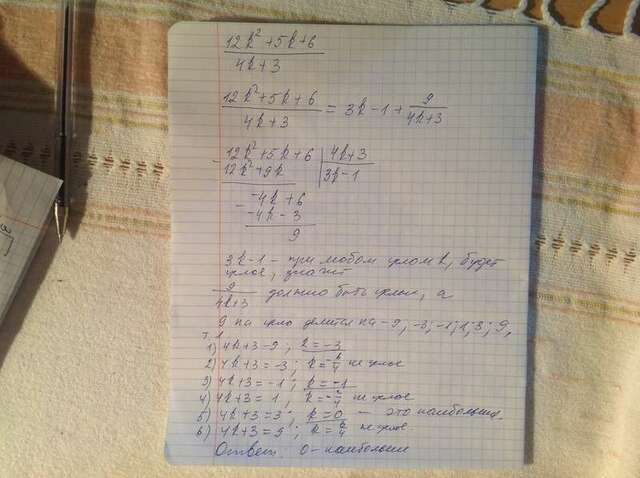 12k² + 5k + 6
4k + 3
12k² + 5k + 6 / 4k + 3 = 3k - 1 + 9 / 4k + 3
- 12k² + 5k + 6 | 4k + 3
12k² + 9k | 3k - 1
- -4k + 6
-4k - 3
9
3k - 1 - при любом целом k, будет
целое, значит
9 / 4k + 3 должно быть целым, а
9 на цело делится на -9, -3, -1; 1; 3; 9,
1) 4k + 3 = -9; k = -3
2) 4k + 3 = -3; k = -6/4 не целое
3) 4k + 3 = -1; k = -1
4) 4k + 3 = 1; k = -2/4 не целое
5) 4k + 3 = 3; k = 0 - это наибольшее.
6) 4k + 3 = 9; k = 6/4 не целое
Ответ: 0 - наибольшее